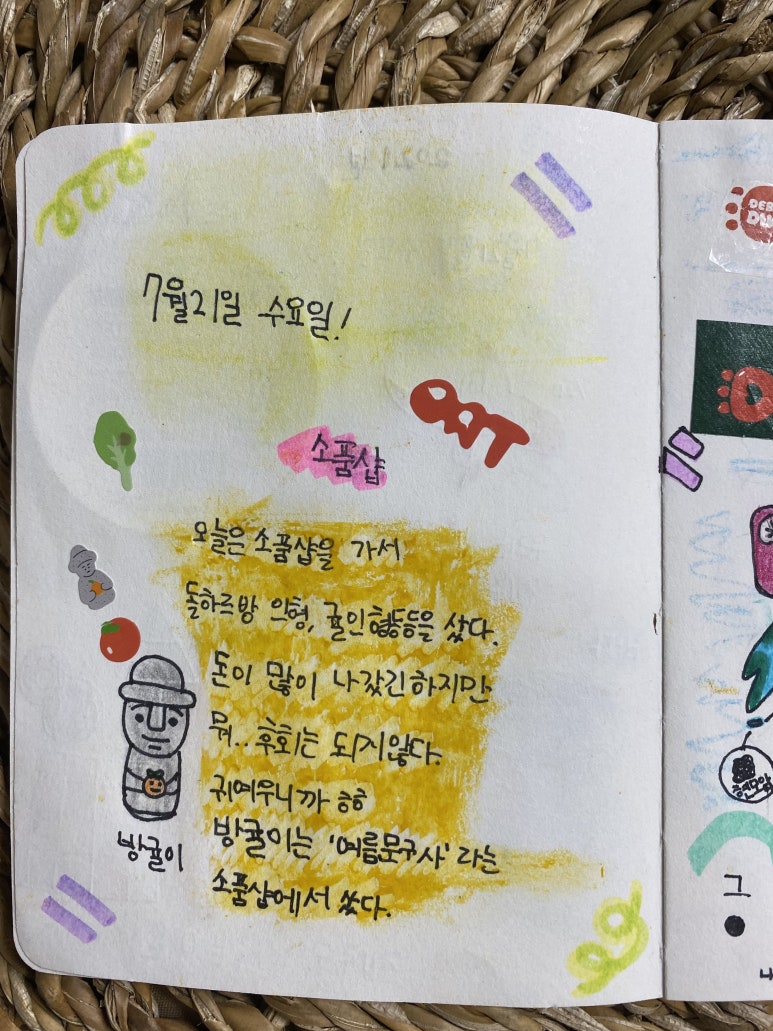 7월21일 수요일!
OAT
소품샵
오늘은 소품샵을 가서
돌하르방 인형, 귤인형등등을 샀다.
돈이 많이 나갔긴하지만
뭐.. 후회는 되지않다.
귀여우니까 ㅎㅎ
방귤이는 '여름문구사' 라는
소품샵에서 샀다.
방귤이
그